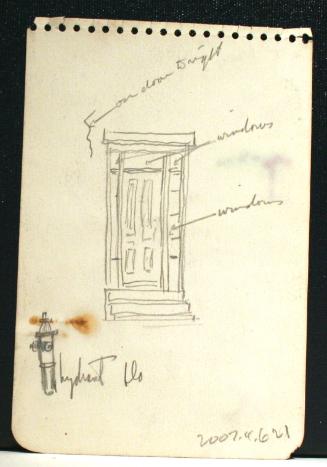 on door Dwight
windows
windows
hydrant Do
2007.4.621